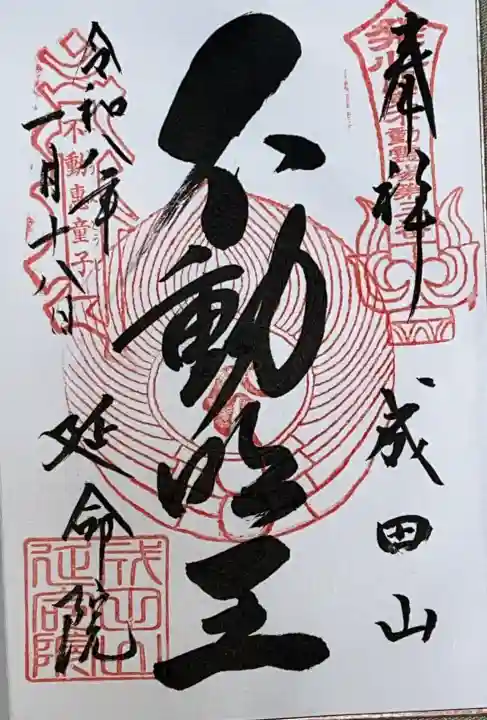 奉拝
成田山
不動明王
令和八年
一月十八日
延命院
不動恵童子
成田山
延命院